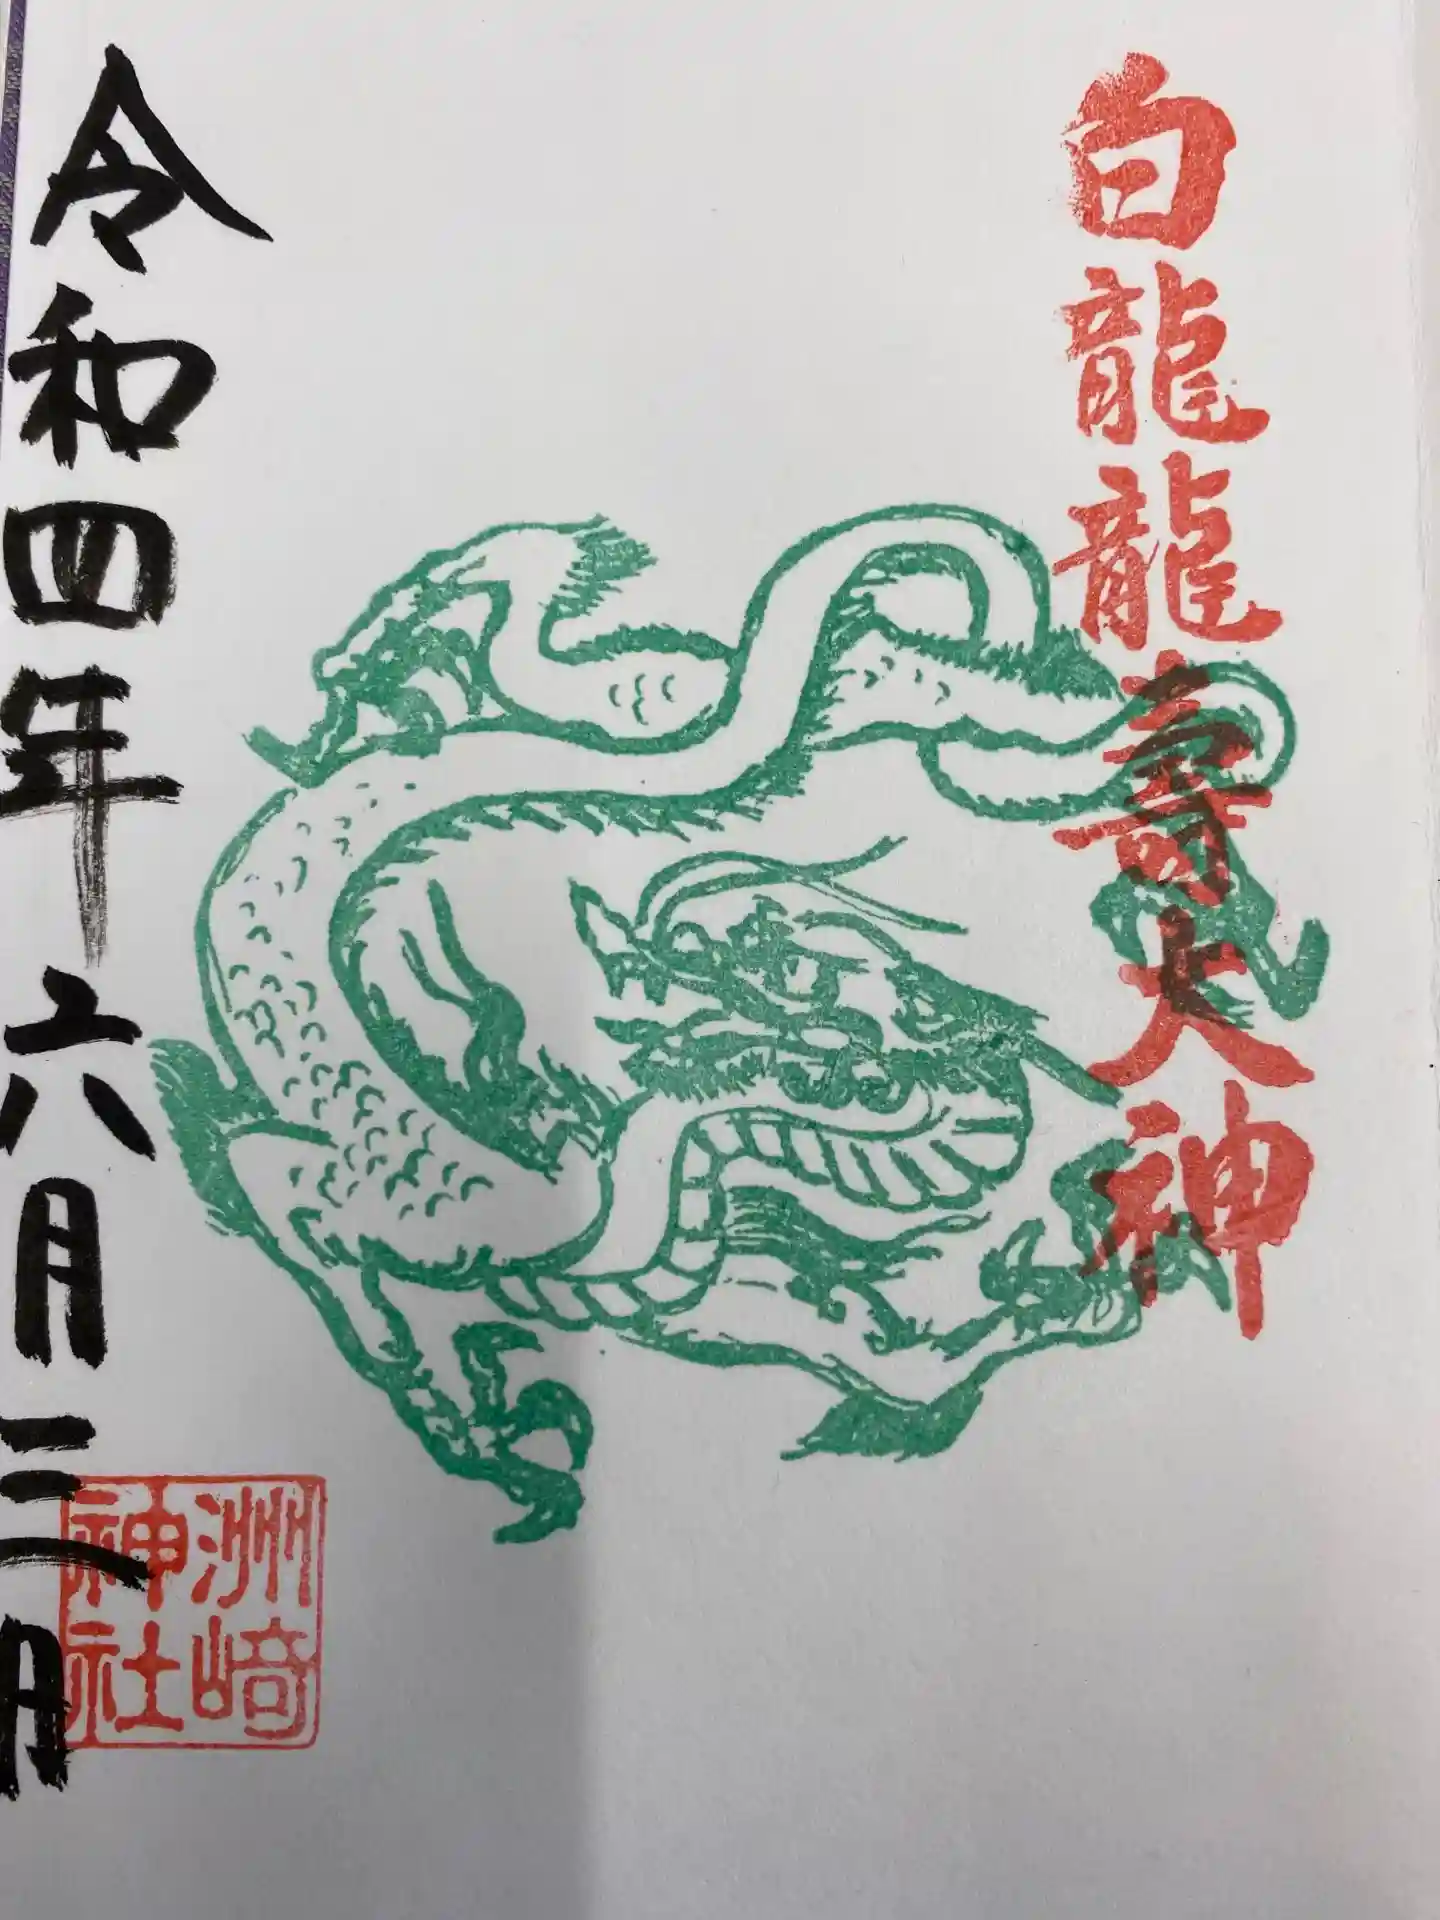 白龍龍寿大神
令和四年六月三日
洲﨑
神社